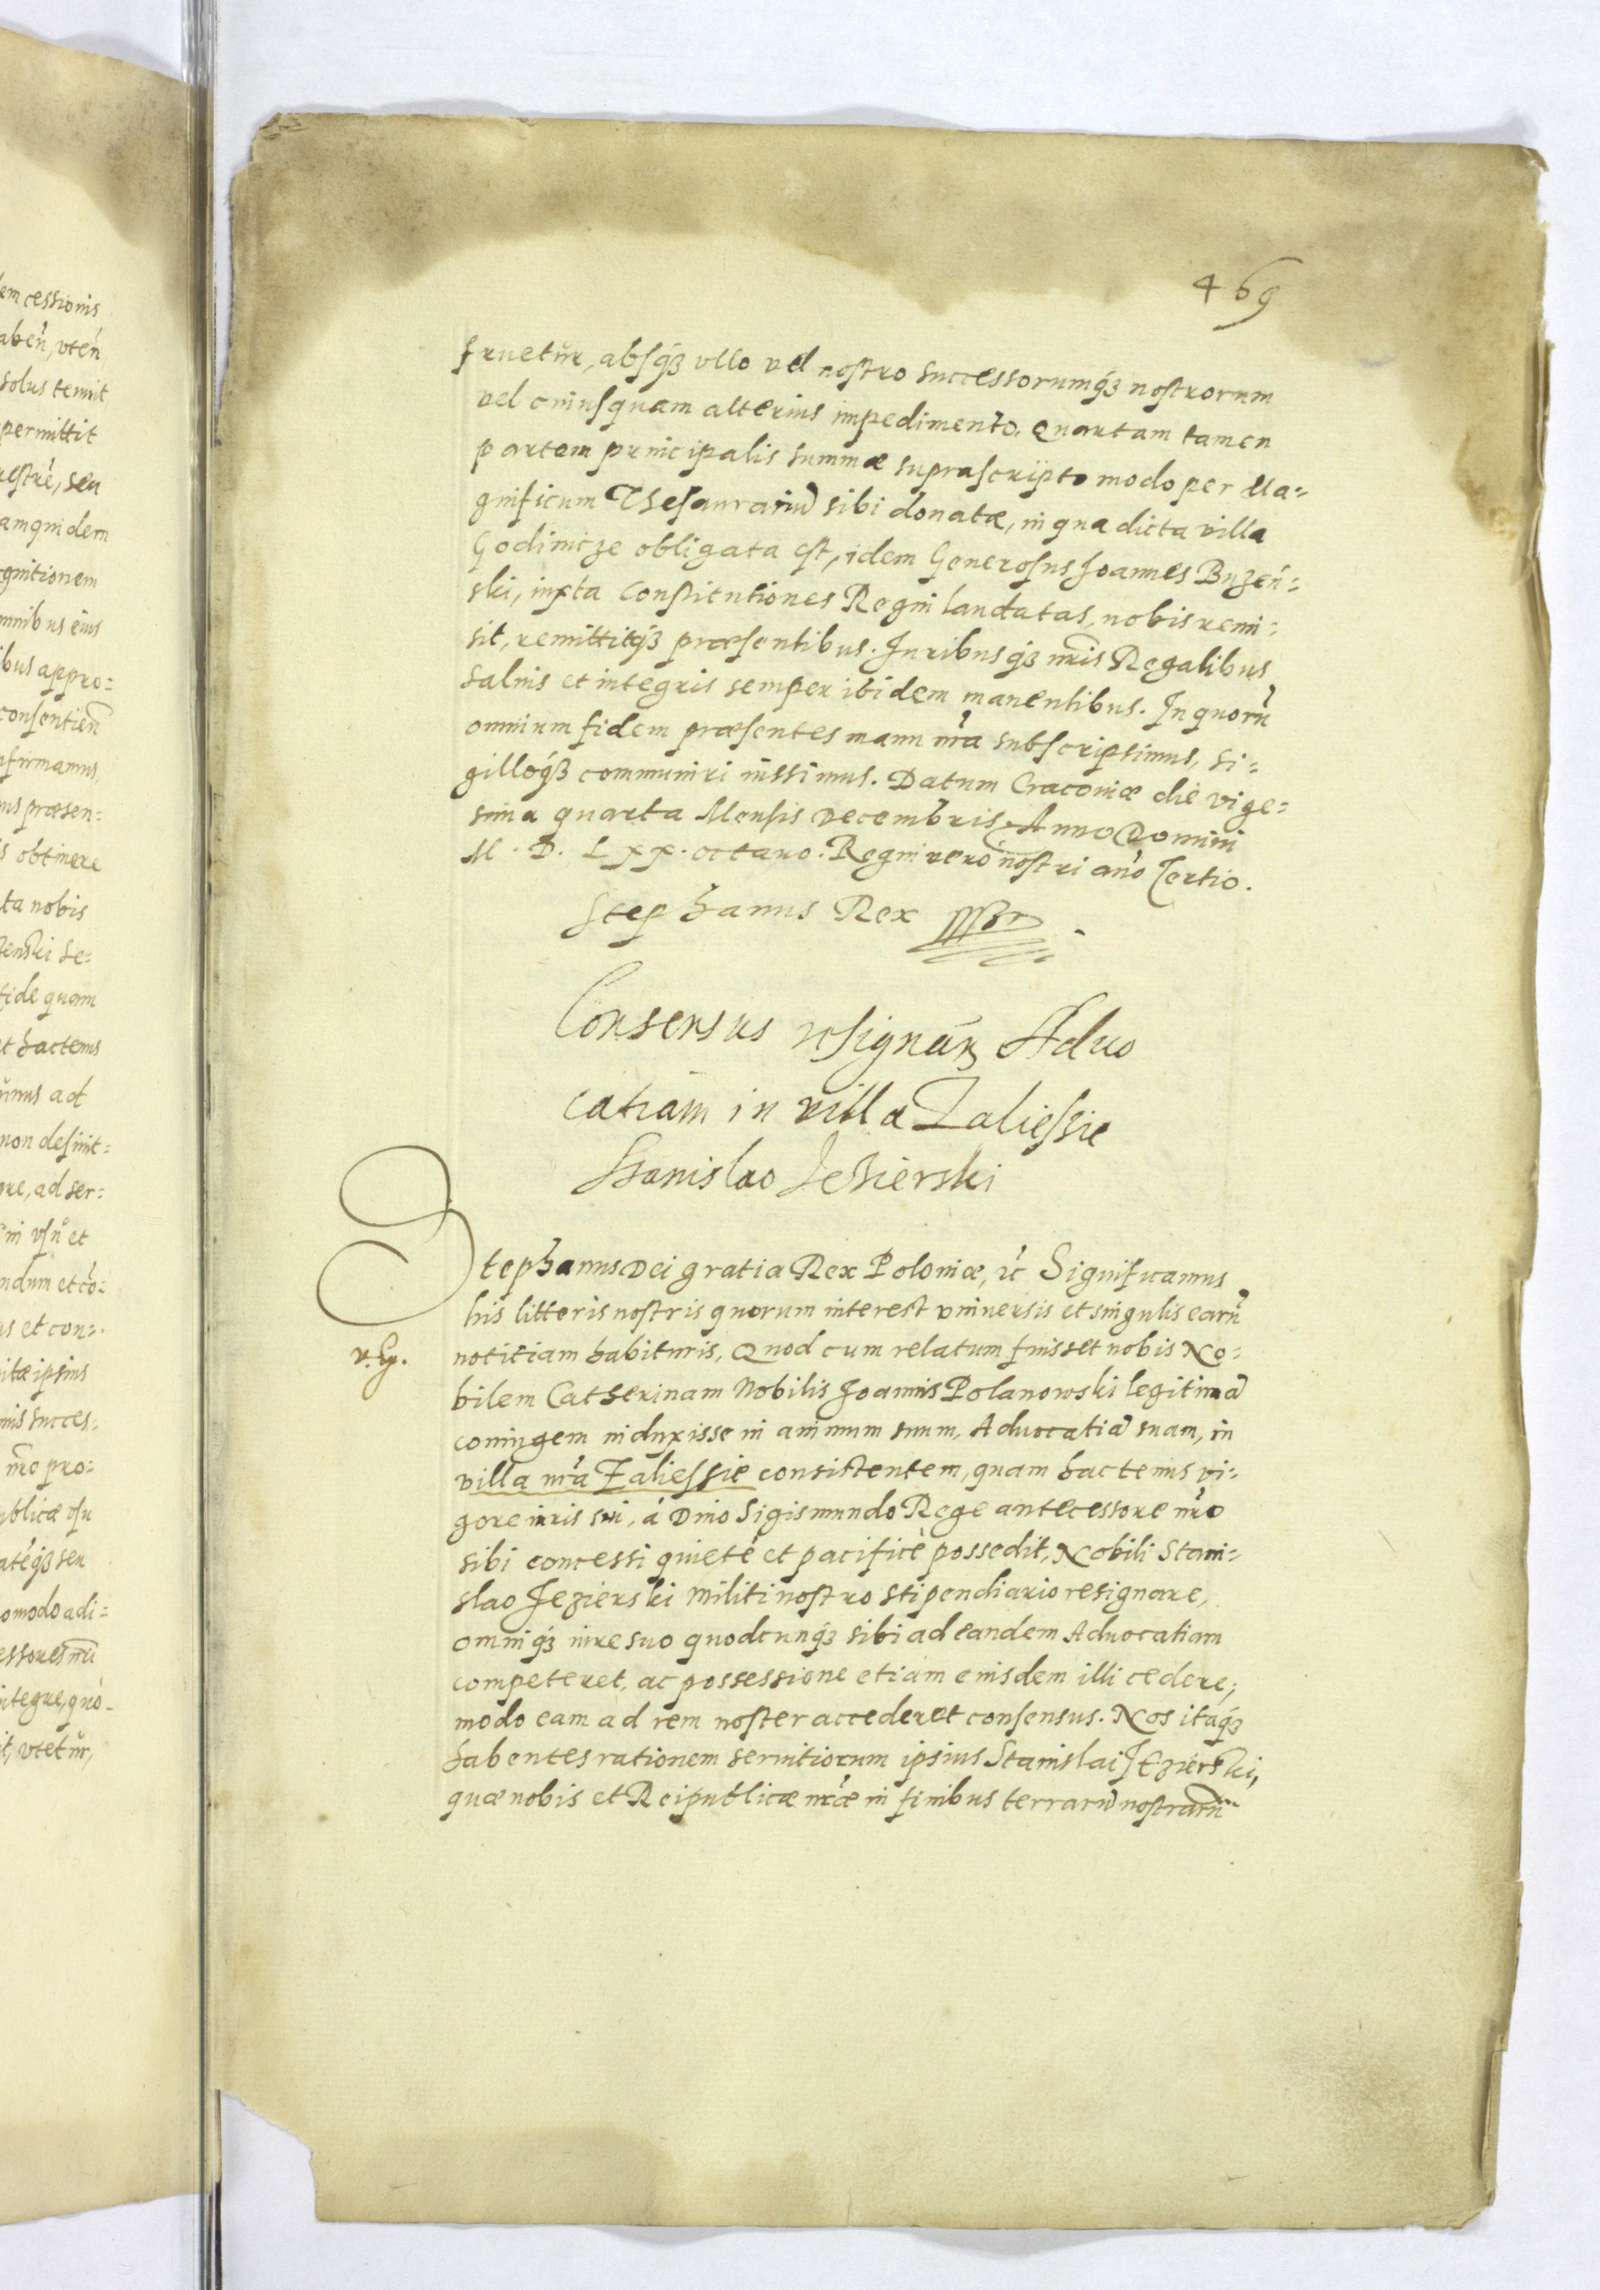 em cessionis
aben̄, vten̄
solus tenuit
permittit
restrē, seu
amquidem
gnitionem
mnibus eius
ibus appro:
consentien̄
nfirmamus,
us præsen:
s obtinere
ta nobis
enski se:
fide quam
et hactenus
ad
non desinit:
re, ad ser:
in vsū et
ndum et cō:
us et con:
itæ ipsius
nis succes:
nr̄o pro:
ublicæ vsu
atéq́ꝫ seu
omodo adi:
essores nr̄i
integre, quó
it, vtetūr,
469
fruetūr, absq́ꝫ vllo vel nostro successorumq́ꝫ nostrorum
vel cuiusquam alterius impedimento. Quartam tamen
partem principalis summæ suprascripto modo per Ma:
gnificum Thesaurariū sibi donatæ, in qua dicta villa
Godinicze obligata est, idem Generosus Joannes Buzeń:
ski, iuxta Constitutiones Regni laudatas, nobis remi:
sit, remittitq́ꝫ præsentibus. Juribusq́ꝫ nr̄is Regalibus
saluis et integris semper ibidem manentibus. In quorū
omnium fidem præsentes manu nr̄a subscripsimus, si:
gilloq́ꝫ communiri iussimus. Datum Cracoviæ die vige:
sima quarta Mensis Decembris, Anno Domini
M. D. Lxx. octauo. Regni vero nostri anō Tertio.
Stephanus Rex
Consensus resignan̄ Aduo
catiam in villa Zaliessie
Stanislao Jezierski
Stephanus Dei gratia Rex Poloniæ, ꝛc̄ Significamus
his litteris nostris quorum interest vniuersis et singulis earū
v. Ey.
notitiam habituris, Quod cum relatum fuisset nobis No:
bilem Catherinam Nobilis Joannis Polanowski legitimā
coniugem induxisse in animum suum, Aduocatiā suam, in
villa nr̄a Zaliessie consistentem, quam hactenus vi:
gore iuris sui, á Diuo Sigismundo Rege antecessore nr̄o
sibi concessi quieté et pacificè possedit, Nobili Stani:
slao Jezierski Militi nostro stipendiario resignare,
omniq́ꝫ iure suo quodcunq́ꝫ sibi ad eandem Aduocatiam
competeret, ac possessione etiam eiusdem illi cedere;
modo eam ad rem noster accederet consensus. Nos itaq́ꝫ
habentes rationem seruitiorum ipsius Stanislai Jezierski,
quæ nobis et Reipublicæ nr̄æ in finibus terrarū nostrarū